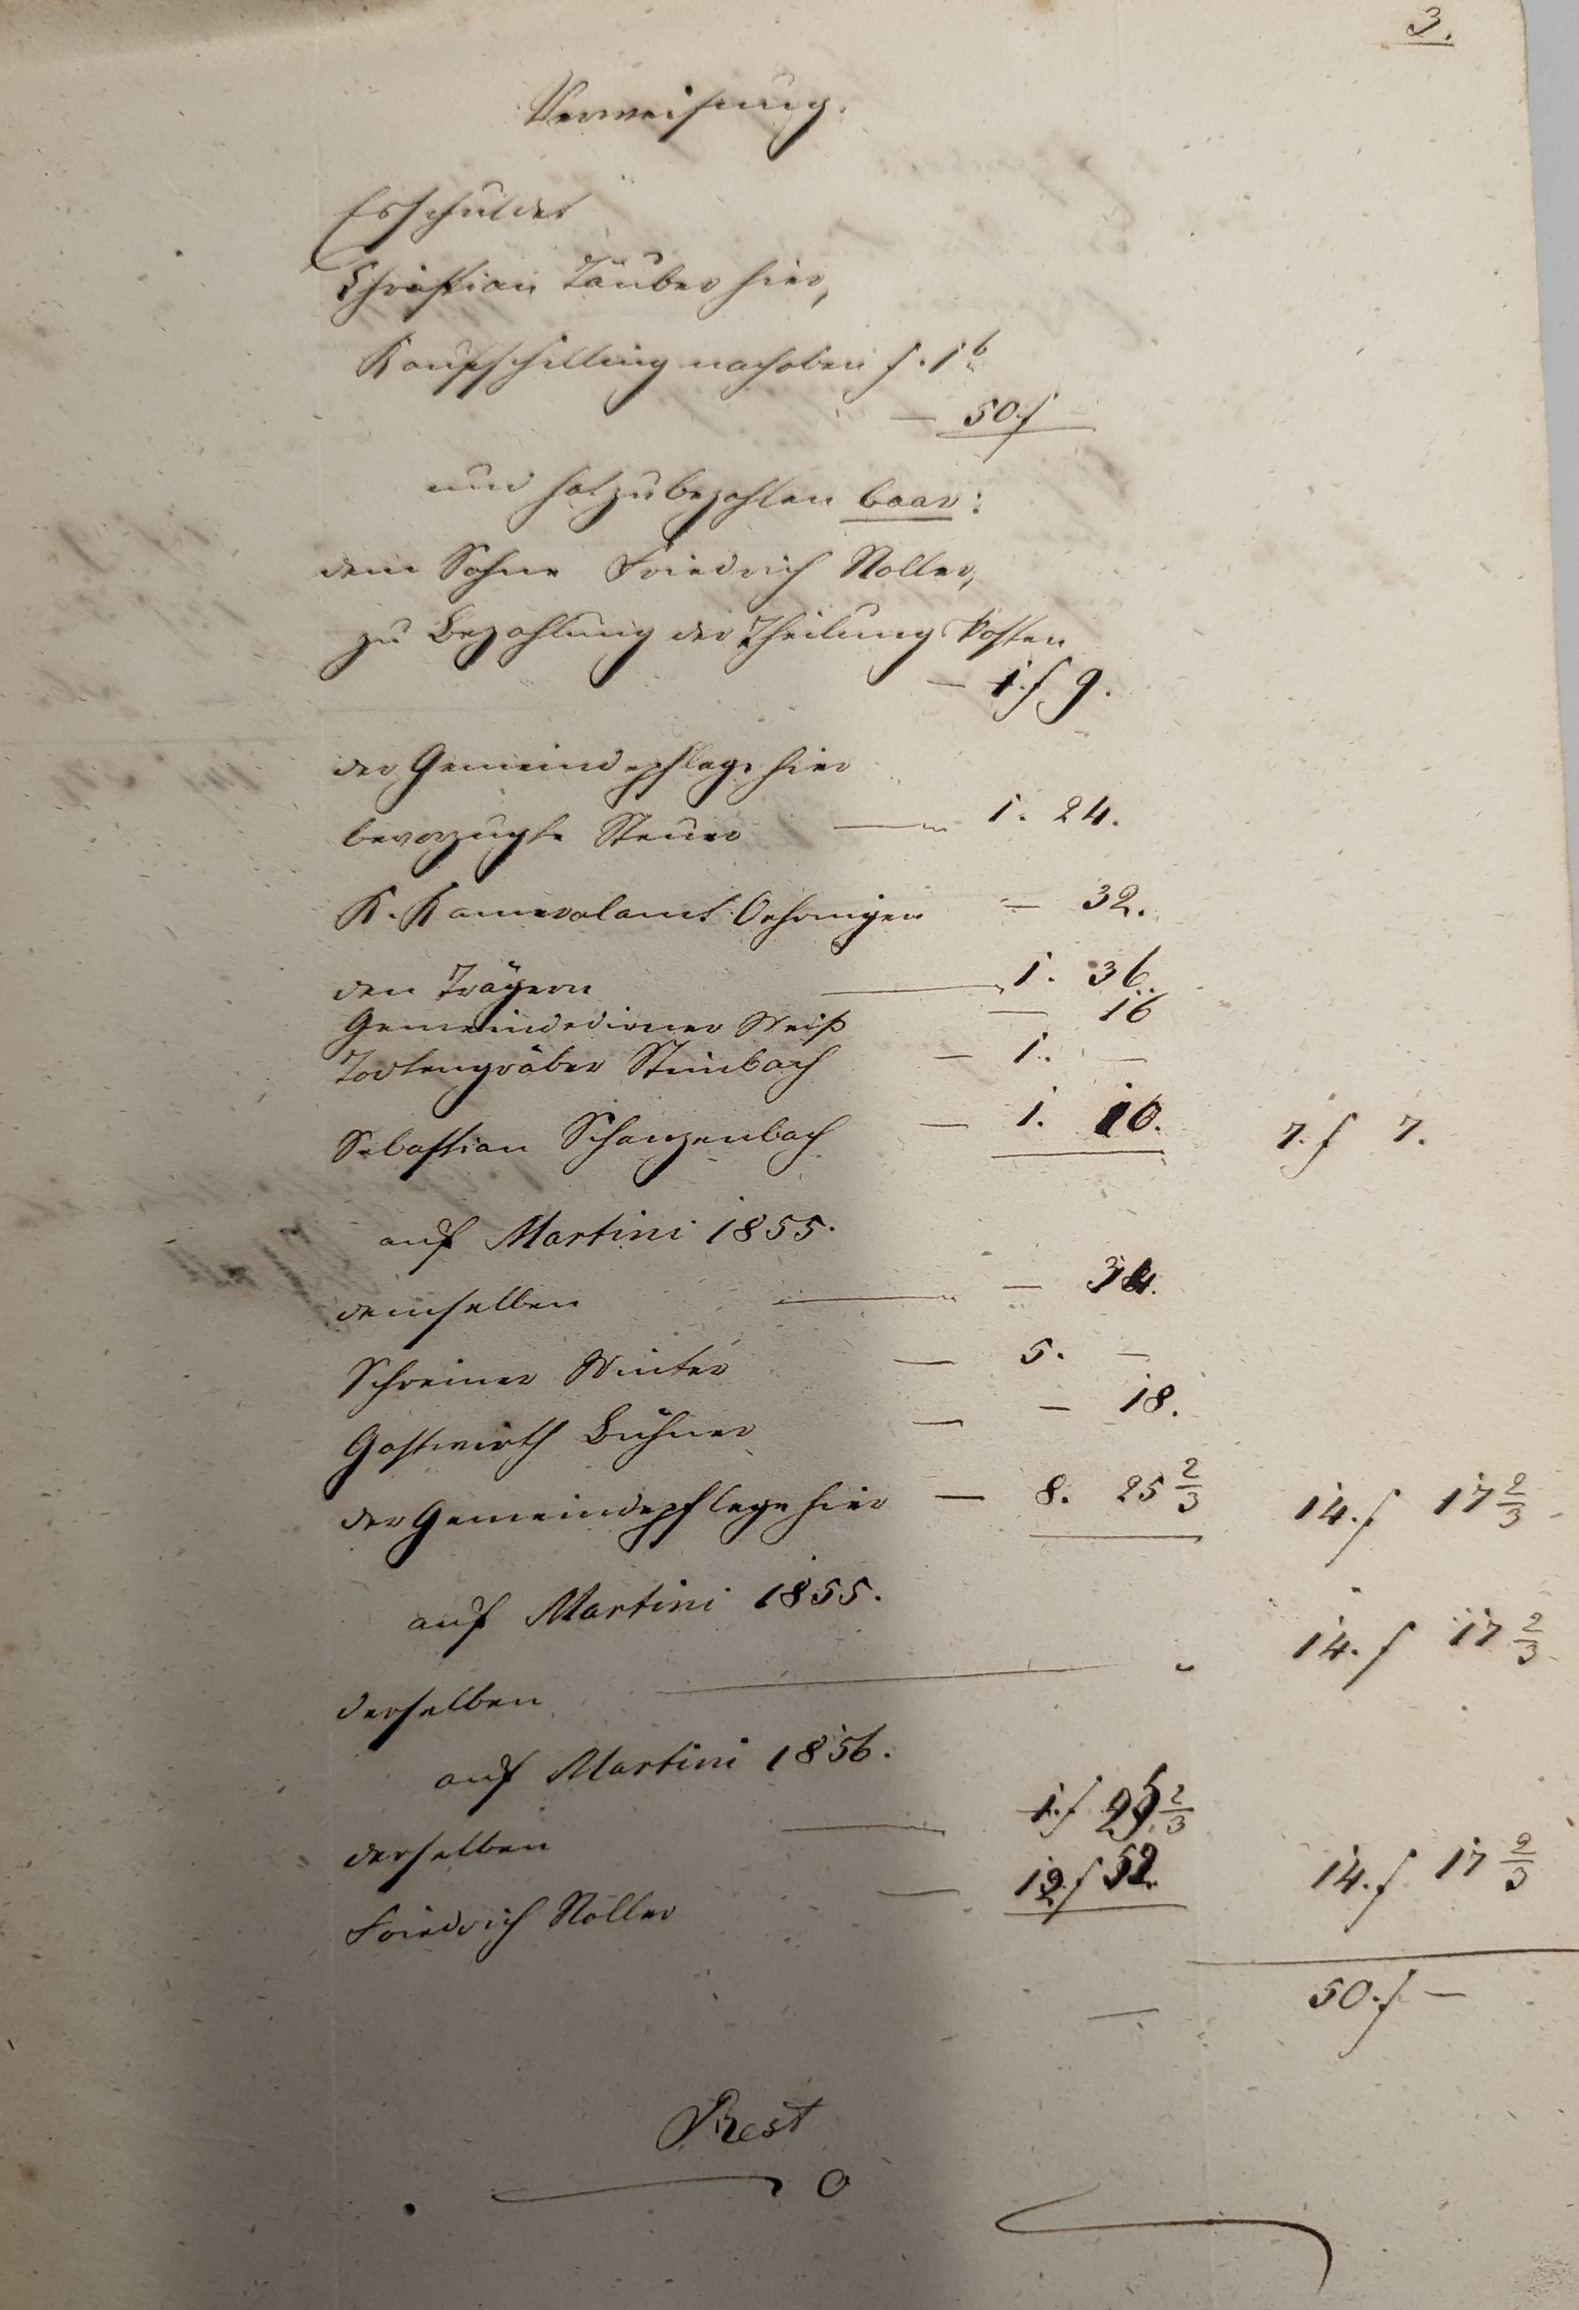 3.
Verweisung.
Es schuldet
Christian Täuber hier,
Kaufschilling nach oben f. 1b
— 50 f
und hat zu bezahlen baar:
dem Sohne Friedrich Noller,
zu Bezahlung der Theilungs Kosten
— 1 f 9.
der Gemeindepflege hier
bevorzugte Steuer — 1. 24.
K. Kameralamt Oehringen — 32.
den Trägern — 1. 36.
Gemeindediener Weiß — 16
Todtengräber Steinbach — 1. —
Sebastian Schanzenbach — 1. 10. 7. f 7.
auf Martini 1855.
demselben — 34.
Schreiner Winter — 5. —
Gastwirth Bühner — — 18.
der Gemeindepflege hier — 8. 25 2/3 14. f 17 2/3
auf Martini 1855.
derselben — 14. f 17 2/3
auf Martini 1856.
derselben — 1. f 25 2/3
Friedrich Noller — 12 f 52. 14. f 17 2/3
— 50. f —
Rest
— 0